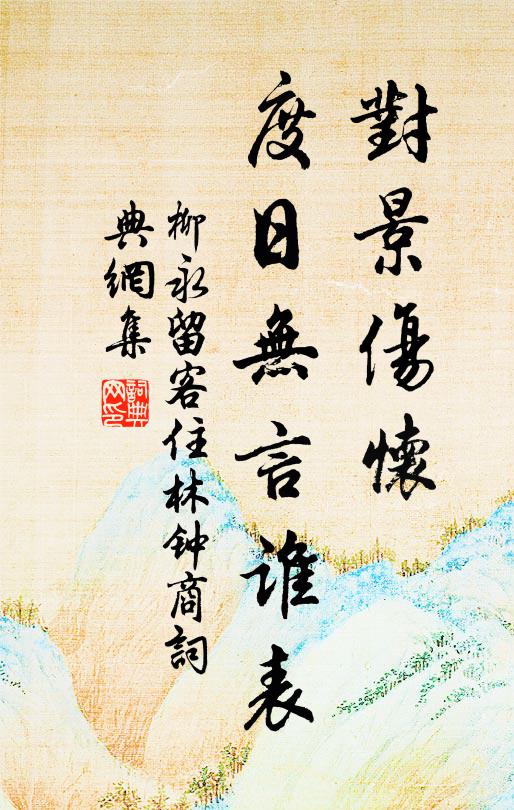 對景傷懷
度日無言誰表
柳永留客住林钟商詞
典網集
詞典
网印